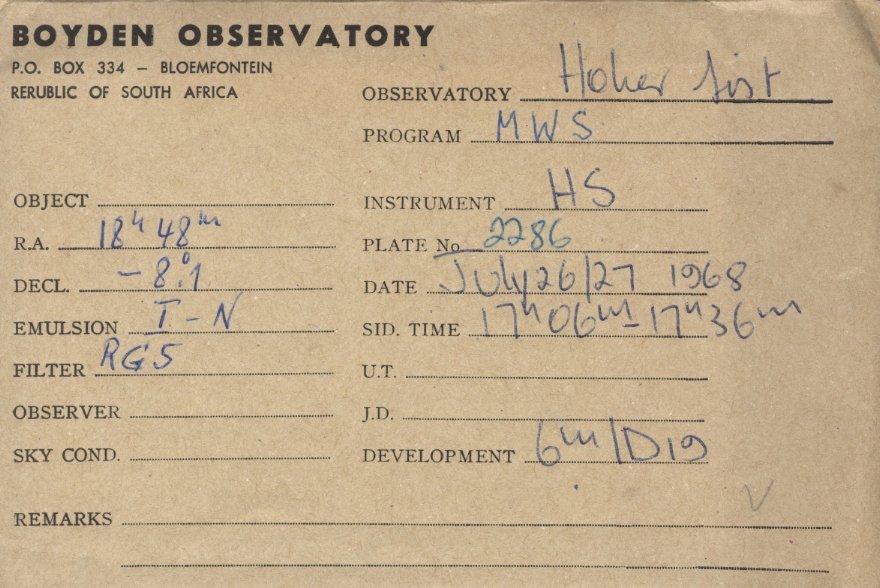 BOYDEN OBSERVATORY
P.O. BOX 334 – BLOEMFONTEIN
RERUBLIC OF SOUTH AFRICA
OBSERVATORY Hoher List
PROGRAM MWS
OBJECT
INSTRUMENT HS
R.A. 18h 48m
PLATE No. 2286
DECL. –8°.1
DATE July 26/27 1968
EMULSION I-N
SID. TIME 17h06m–17h36m
FILTER RG5
U.T.
OBSERVER
J.D.
SKY COND.
DEVELOPMENT 6m/D19
REMARKS